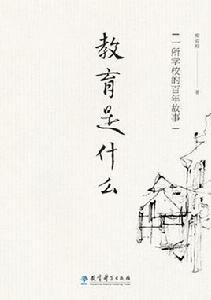 教育是什么
一所学校的百年故事
著
教育科学出版社